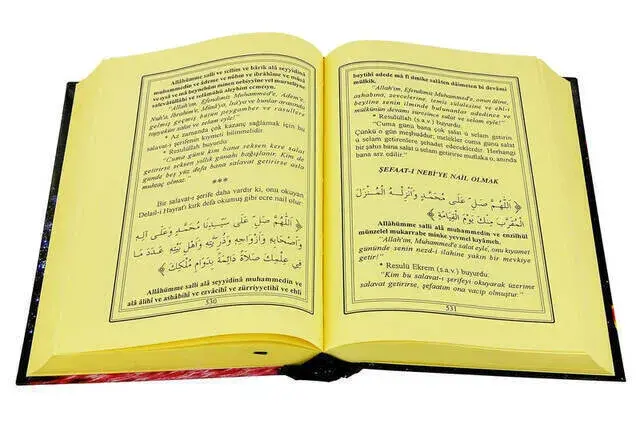 Allâhümme salli ve sellim ve bârik alâ seyyidinâ
muhammedin ve âdeme ve nûhın ve ibrâhîme ve mûsâ
ve iysâ ve mâ beynehüm minen nebiyyîne vel murselîyne
salevâtüllâhi ve selâmühû aleyhim ecmeıyn.
"Allah'ım, Efendimiz Muhammed'e, Adem'e,
Nuh'a, İbrahim'e, Musa'ya, İsa'ya ve bunlar arasında
gelmiş geçmiş bütün peygamber ve rasullere
salat ve selam eyle!"
* Az zamanda çok kazanç sağlamak için bu
salavat-ı şerifenin kıymeti bilinmelidir.
* Resulüllah (s.a.v) buyurdu:
"Cuma günü kim bana seksen kere salat
getirirse seksen yıllık günahı bağışlanır. Kim de
günde beş yüz defa bana salavat getirirse asla
muhtaç olmaz."
***
Bir salavat-ı şerife daha vardır ki, onu okuyan
Delail-i Hayrat'ı kırk defa okumuş gibi ecre nail olur:
اَللّٰهُمَّ صَلِّ عَلٰى سَيِّدِنَا مُحَمَّدٍ وَعَلٰى اٰلِهِ
وَاَصْحَابِهِ وَاَزْوَاجِهِ وَذُرِّيَّتِهِ وَاَهْلِ بَيْتِهِ عَدَدَ مَا
فِى عِلْمِكَ صَلَاةً دَائِمَةً بِدَوَامِ مُلْكِكَ
Allâhümme salli alâ seyyidinâ muhammedin ve
alâ âlihî ve ashâbihî ve ezvâcihî ve zürriyyetihî ve ehli
530
beytihî adede mâ fî ılmike salâten dâimeten bi devâmi
mülkik.
"Allah'ım, Efendimiz Muhammed'e, onun âline,
ashabına, zevcelerine, temiz sülalesine ve ehli
beytine senin ilminde bulunanlar adedince ve senin
mülkünün devamı süresince salat ve selam eyle!"
* Resulüllah (s.a.v) buyurdu:
"Cuma günü bana çok salat ü selam getirin.
Çünkü o gün meşhuddur, melekler cuma günü
salat ü selam getirenlere şehadet edeceklerdir. Herhangi
bir şahıs bana salat ü selam getirirse mutlaka o, anında
bana arz edilir."
ŞEFAAT-I NEBİ'YE NAİL OLMAK
اَللّٰهُمَّ صَلِّ عَلٰى مُحَمَّدٍ وَاَنْزِلْهُ الْمُنْزَلَ
الْمُقَرَّبَ مِنْكَ يَوْمَ الْقِيَامَةِ
Allâhümme salli alâ muhammedin ve enzilhül
münzelel mukarrabe minke yevmel kıyâmeh.
"Allah'ım, Muhammed'e salat eyle, onu kıyamet
gününde senin nezd-i ilahine yakin bir mevkiye
getir!"
* Resulü Ekrem (s.a.v.) buyurdu:
"Kim bu salavat-ı şerifeyi okuyarak üzerime
salavat getirirse, şefaatım ona vacip olmuştur."
531